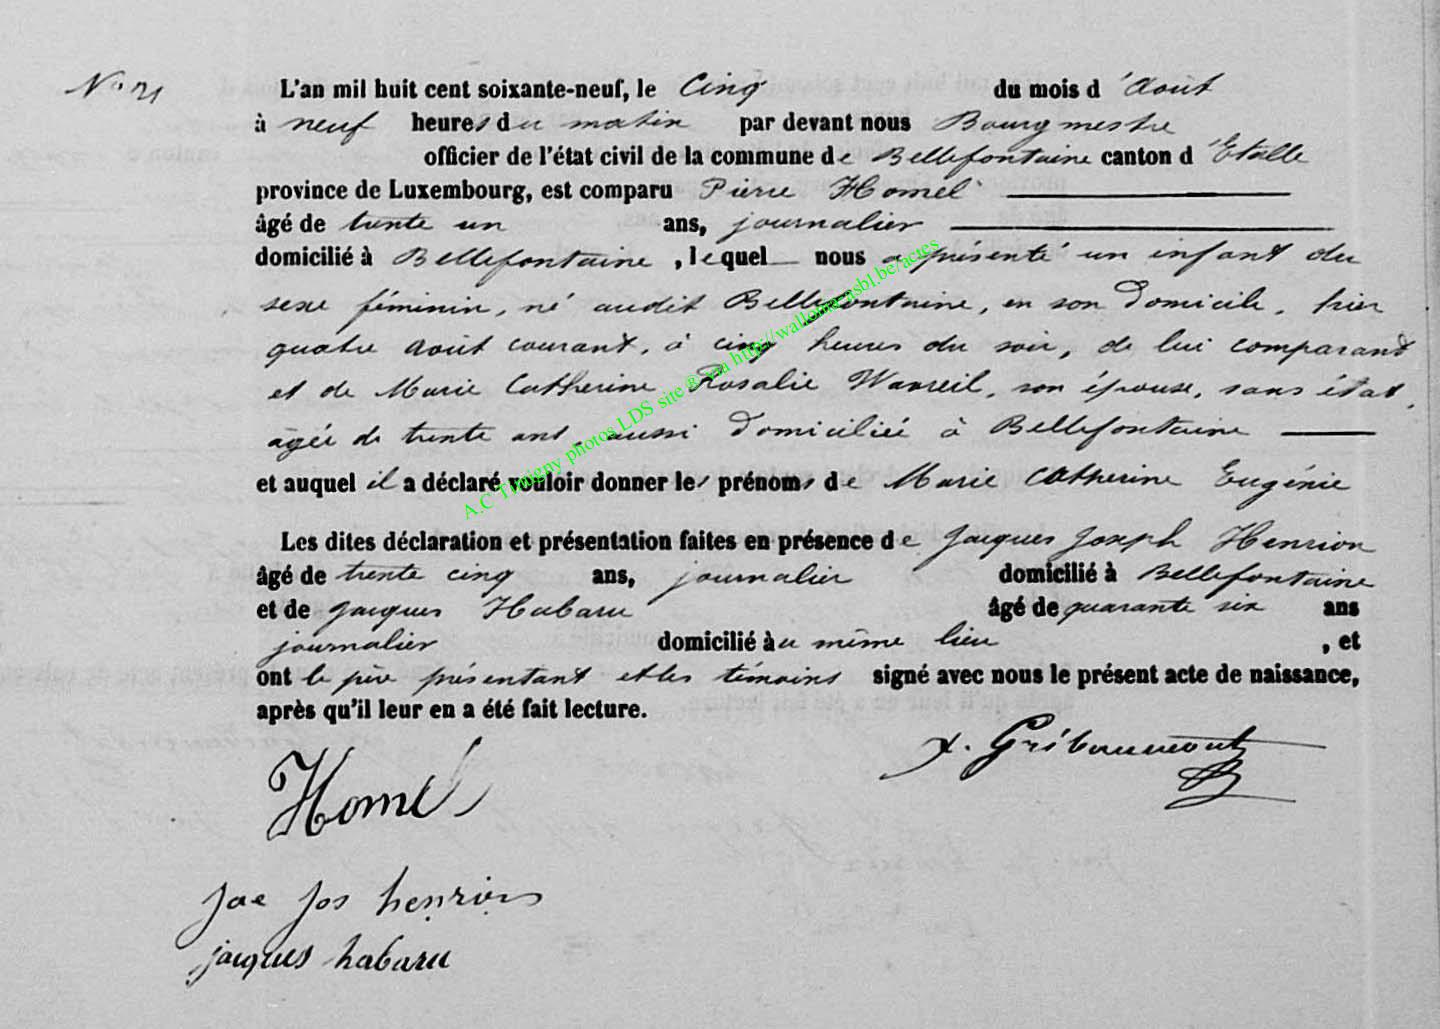 N° 31
L'an mil huit cent soixante-neuf, le Cinq du mois d'Août
à neuf heures du matin par devant nous Bourgmestre
officier de l'état civil de la commune de Bellefontaine canton d'Etalle
province de Luxembourg, est comparu Pierre Homel
âgé de trente un ans, journalier
domicilié à Bellefontaine, lequel nous a présenté un enfant du
sexe féminin, né audit Bellefontaine, en son domicile, hier
quatre août courant, à cinq heures du soir, de lui comparant
et de Marie Catherine Rosalie Wavreil, son épouse, sans état,
agée de trente ans, aussi domiciliée à Bellefontaine
et auquel il a déclaré vouloir donner les prénoms de Marie Catherine Eugénie
Les dites déclaration et présentation faites en présence de Jacques Joseph Henrion
âgé de trente cinq ans, journalier domicilié à Bellefontaine
et de Jacques Habaru âgé de quarante six ans
journalier domicilié au même lieu, et
ont le père présentant et les témoins signé avec nous le présent acte de naissance,
après qu'il leur en a été fait lecture.
Gribaumont
Homel
Jac Jos henrion
jacques habaru
A.C Tintigny photos LDS site ® via http://wallonia-asbl.be/actes